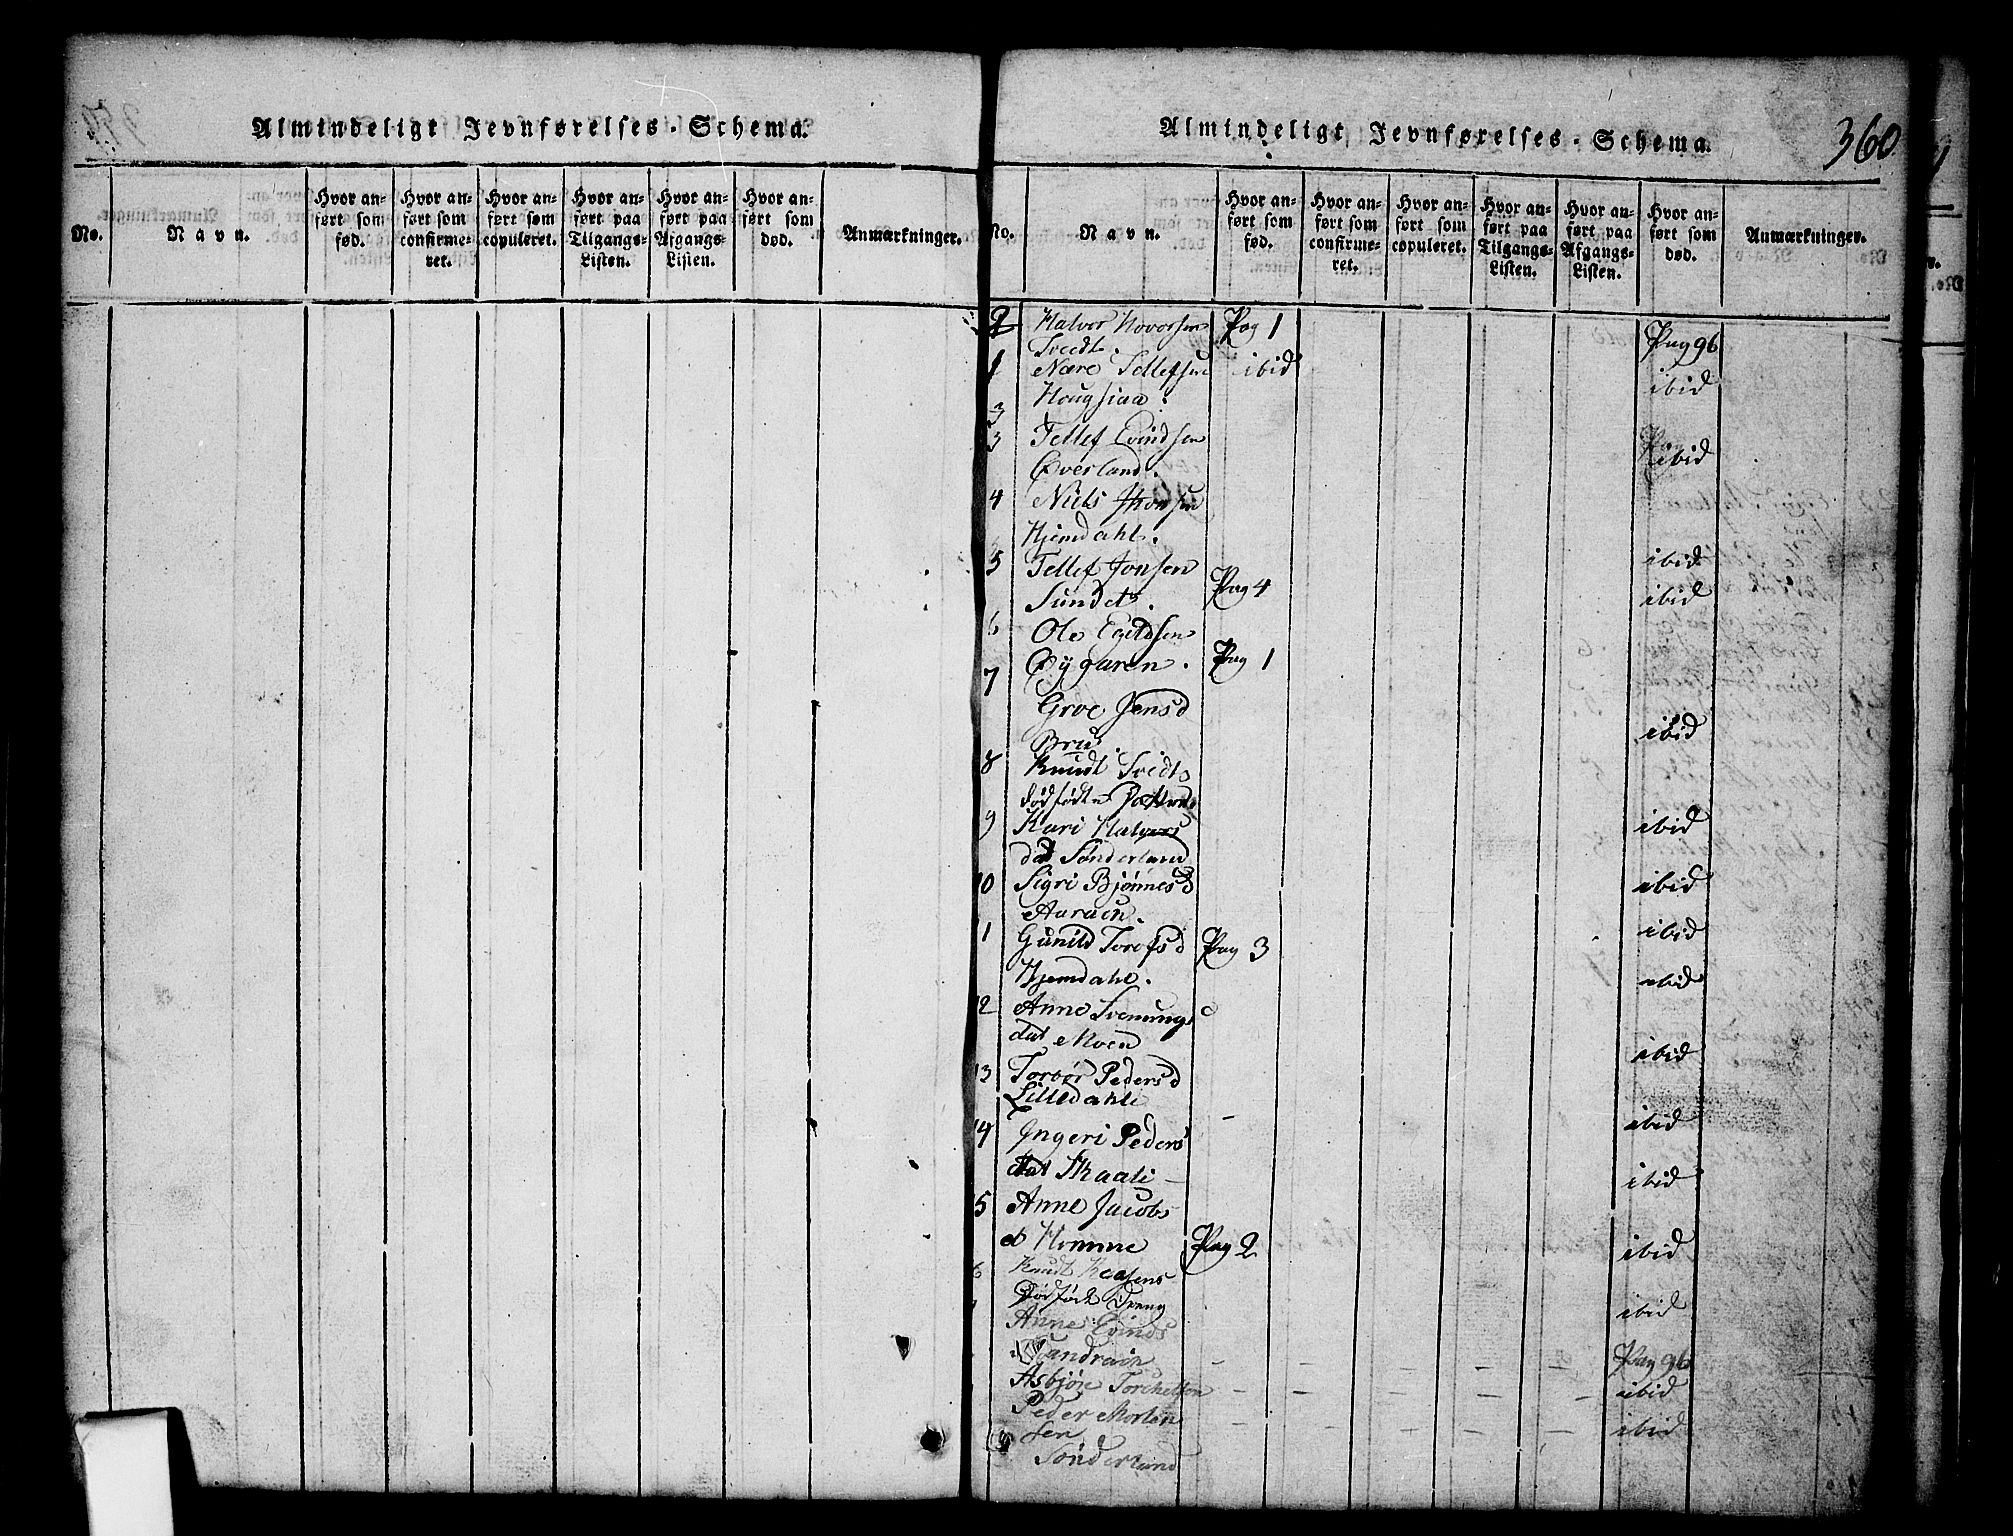 Almindeligt Jevnførelses-Schema.
No.
Navn.
Hvor anført som fød.
Hvor anført som confirmeret.
Hvor anført som copuleret.
Hvor anført paa Tilgangs-Listen.
Hvor anført paa Afgangs-Listen.
Hvor anført som død.
Anmærkninger.
Almindeligt Jevnførelses-Schema.
360
No.
Navn.
Hvor anført som fød.
Hvor anført som confirmeret.
Hvor anført som copuleret.
Hvor anført paa Tilgangs-Listen.
Hvor anført paa Afgangs-Listen.
Hvor anført som død.
Anmærkninger.
2 Halvor Hovorsen Pag 1
Tvedt. Pag 96
1 Nære Tellefsen ibid ibid
Hougsiaa.
3 Tellef Evindsen
Øverland. ibid
4 Niels Jhonsen
Hjemdahl.
5 Tellef Jonsen ibid
Sundet. Pag 4 ibid
6 Ole Egeldsen
Øygaren. Pag 1
7 Groe Jensd
Bru. ibid
8 Knudt Tvedts
dødfødte
9 Kari Halvors ibid
dat Sønderland
10 Sigri Bjønnesd ibid
Aaraen.
1 Gunild Torefsd Pag 3 ibid
Hjemdahl. ibid
12 Anne Svenungs
dat Moen
13 Torbør Pedersd ibid
Lilledahl
14 Ingeri Peders ibid
dat Skaali ibid
5 Anne Jacobs
d Homme Pag 2 ibid
6 Knudt
Dødfødt Dreng ibid
Anne Evinds
Pag 96
Asbjøre Torkelsen ibid
Peder Morten ibid
sen
Sønderland